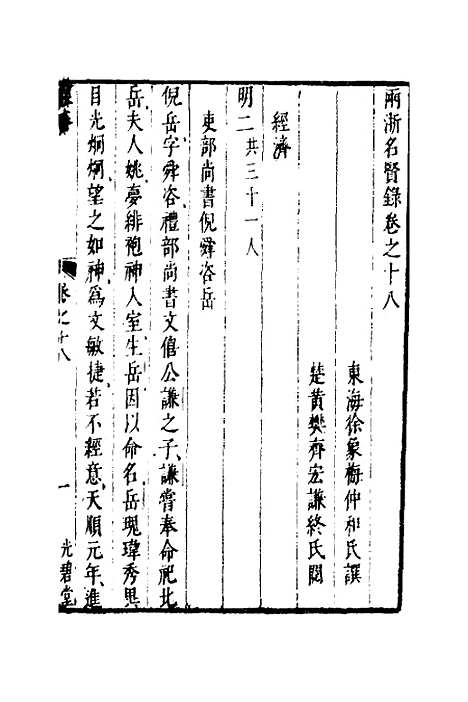 兩浙名賢錄卷之十八
東海徐象梅仲和氏譔
楚黃樊齊宏謙終氏閱
經濟
明二共三十一人
吏部尚書倪舜咨岳
倪岳字舜咨禮部尚書文僖公謙之子謙嘗奉命祀北
岳夫人姚夢緋袍神入室生岳因以命名岳瑰瑋秀異
目光炯炯望之如神爲文敏捷若不經意天順元年進
卷之十八
一
光碧堂